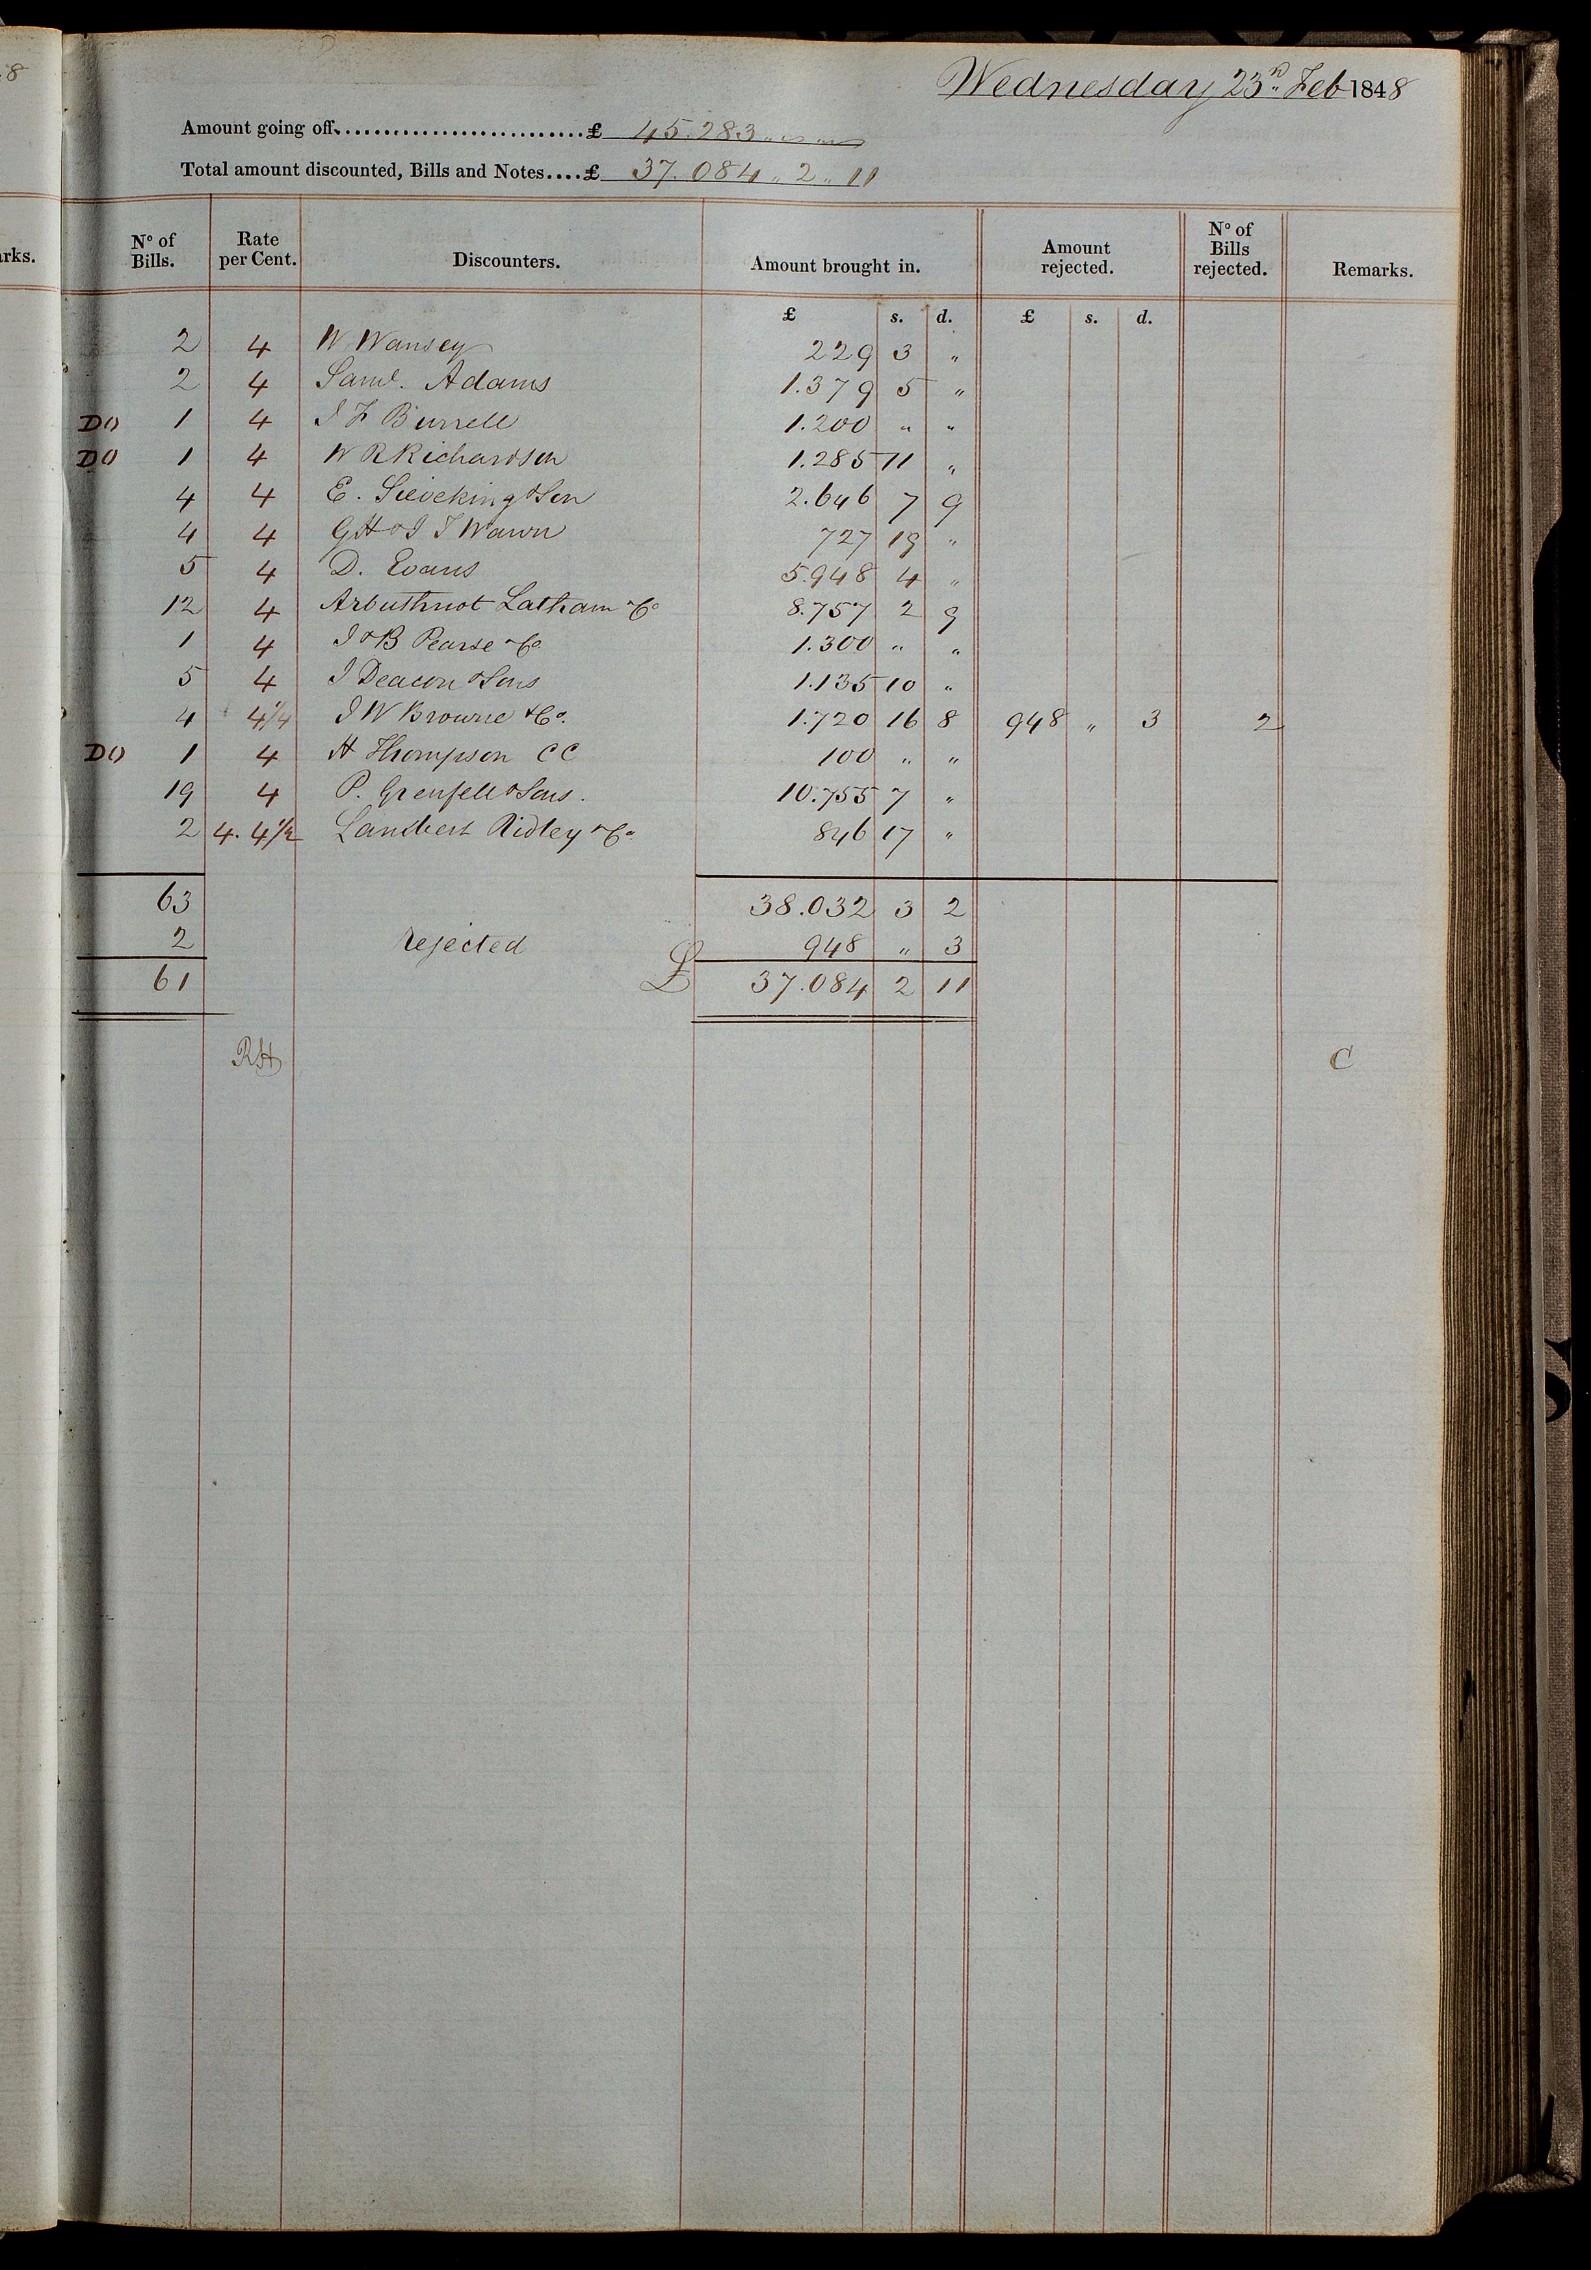 8
Wednesday 23rd Feb 1848
Amount going off..........................£ 45.283 „ „
Total amount discounted, Bills and Notes....£ 37.084 „ 2 „ 11
arks.
No of Bills. Rate per Cent. Discounters. Amount brought in. Amount rejected. No of Bills rejected. Remarks.
£ s. d. £ s. d.
2 4 W Wansey 229 3 „
2 4 Saml. Adams 1.379 5 „
DO 1 4 J F Burrell 1.200 „ „
DO 1 4 W R Richardson 1.285 11 „
4 4 E. Sieveking & Son 2.646 7 9
4 4 GH & J T Wawn 727 19 „
5 4 D. Evans 5.948 4 „
12 4 Arbuthnot Latham & Co 8.757 2 9
1 4 J & B Pearse & Co 1.300 „ „
5 4 J Deacon & Sons 1.135 10 „
4 4 1/4 J W Browne & Co. 1.720 16 8 948 „ 3 2
DO 1 4 H Thompson CC 100 „ „
19 4 P. Grenfell & Sons. 10.755 7 „
2 4. 4 1/2 Lambert Ridley & Co 846 17 „
63 38.032 3 2
2 rejected 948 „ 3
61 £ 37.084 2 11
RH C